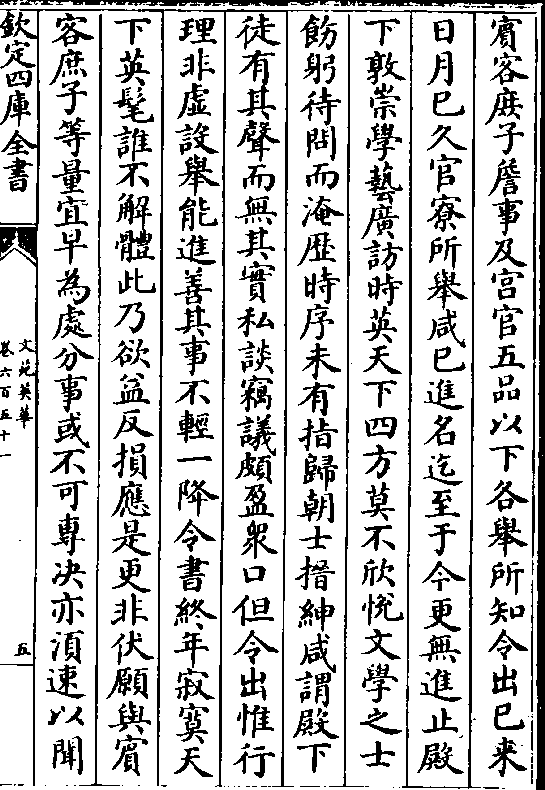 賔客庶子詹事及宫官五品以下各舉所知令出已来
日月已久官寮所舉咸已進名迄至于今更無進止殿
下敦崇學藝廣訪時英天下四方莫不欣悅文學之士
飭躬待問而淹歷時序未有指歸朝士搢紳咸謂殿下
徒有其聲而無其實私談竊議頗盈衆口但令出惟行
理非虛設舉能進善其事不輕一降令書終年寂寞天
下英髦誰不解體此乃欲益反損應是更非伏願與賔
客庶子等量宜早為處分事或不可專决亦須速以聞
欽定四庫全書
文苑英華
卷六百五十一
五